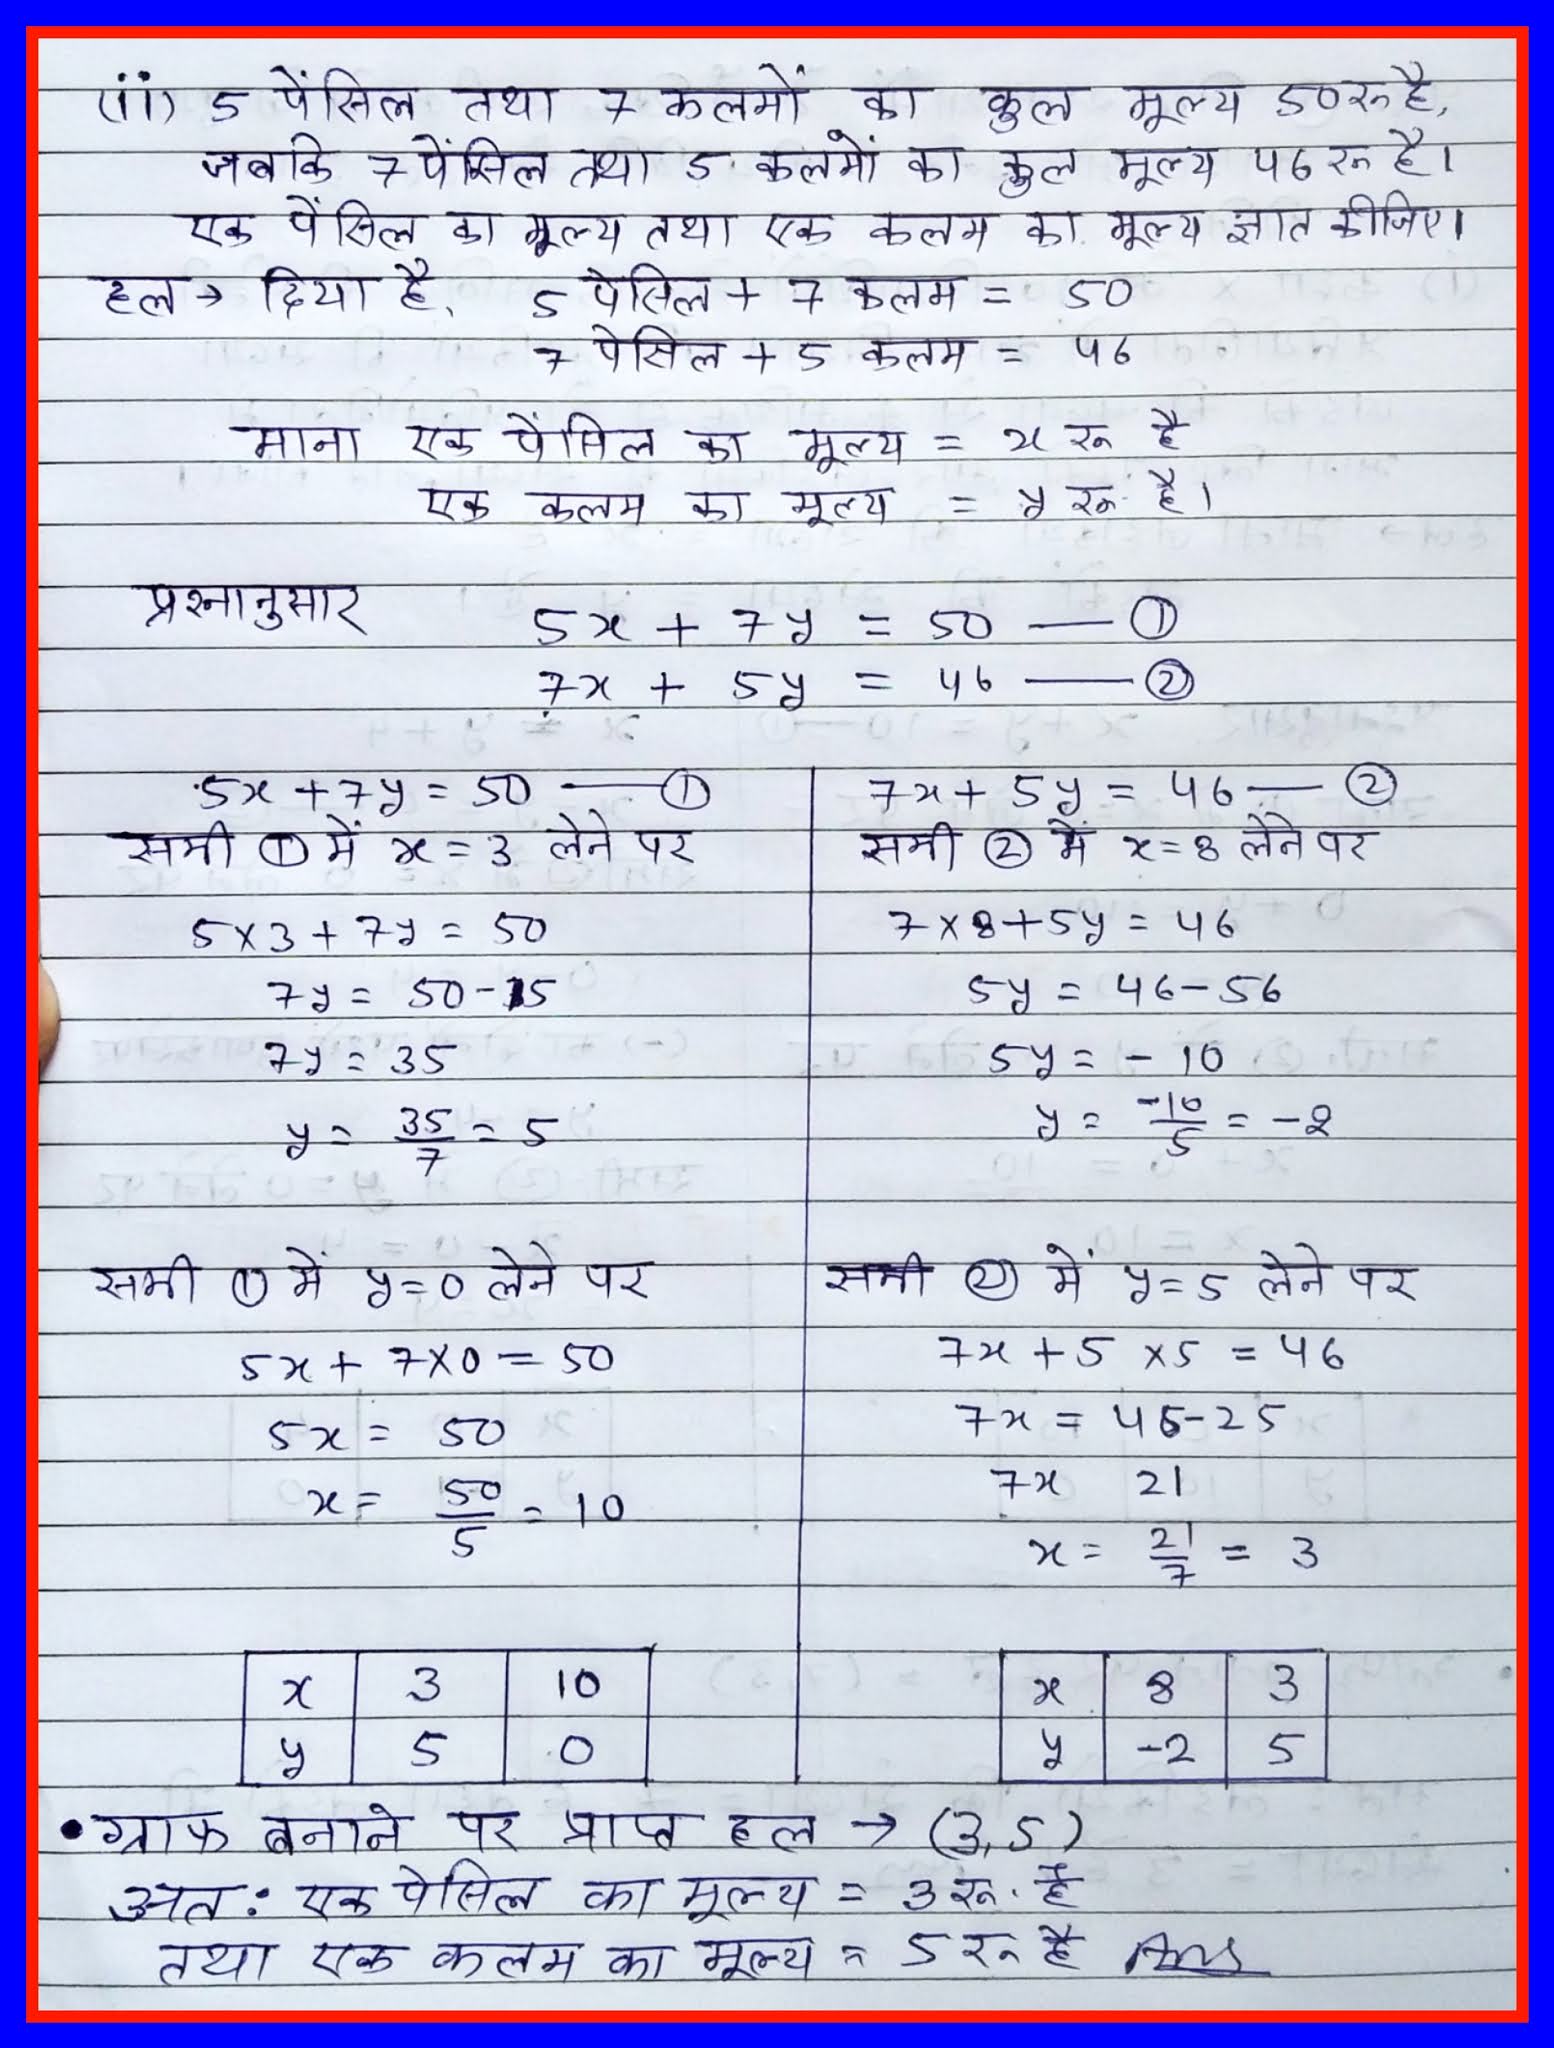 (ii) 5 पेंसिल तथा 7 कलमों का कुल मूल्य 50 रू है,
जबकि 7 पेंसिल तथा 5 कलमों का कुल मूल्य 46 रू है।
एक पेंसिल का मूल्य तथा एक कलम का मूल्य ज्ञात कीजिए।
हल → दिया है, 5 पेंसिल + 7 कलम = 50
7 पेसिल + 5 कलम = 46
माना एक पेंसिल का मूल्य = x रू है
एक कलम का मूल्य = y रू है।
प्रश्नानुसार 5x + 7y = 50 — ①
7x + 5y = 46 — ②
5x + 7y = 50 — ①
समी ① में x = 3 लेने पर
5 × 3 + 7y = 50
7y = 50 - 15
7y = 35
y = 35/7 = 5
समी ① में y = 0 लेने पर
5x + 7×0 = 50
5x = 50
x = 50/5 = 10
x 3 10
y 5 0
7x + 5y = 46 — ②
समी ② में x = 8 लेने पर
7 × 8 + 5y = 46
5y = 46 - 56
5y = - 10
y = -10/5 = -2
समी ② में y = 5 लेने पर
7x + 5 × 5 = 46
7x = 46 - 25
7x 21
x = 21/7 = 3
x 8 3
y -2 5
• ग्राफ बनाने पर प्राप्त हल → (3, 5)
अत: एक पेसिल का मूल्य = 3 रू. है
तथा एक कलम का मूल्य = 5 रू है Ans